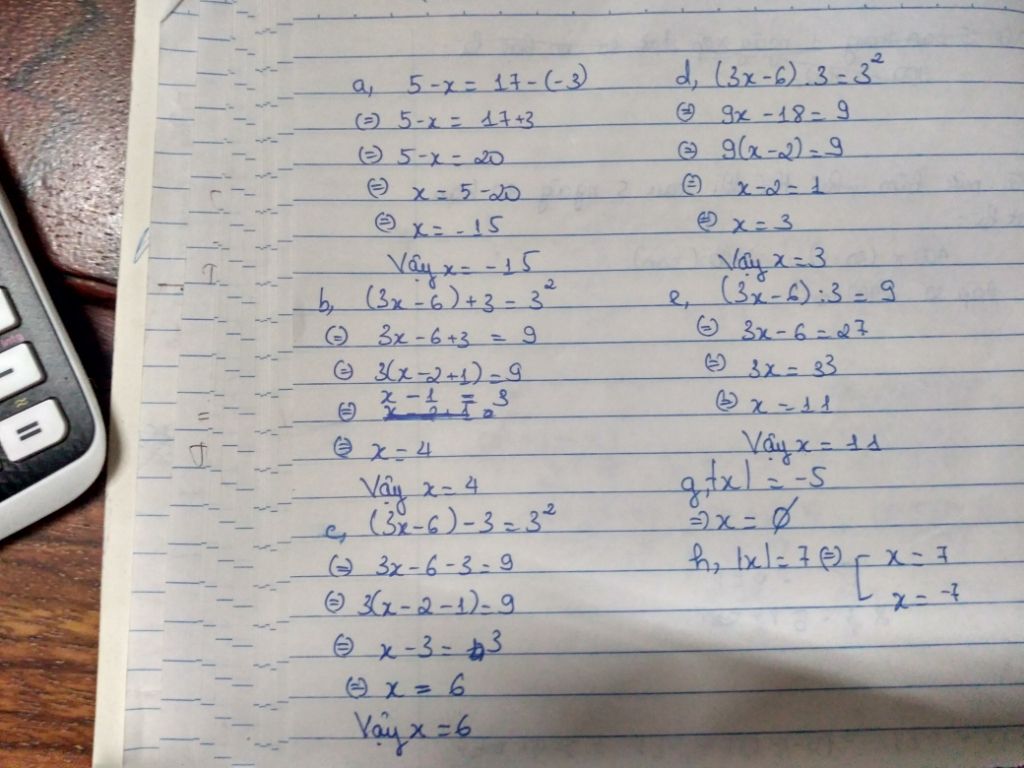 a, 5-x = 17-(-3)
(=) 5-x = 17+3
(=) 5-x = 20
(=) x = 5-20
(=) x = -15
Vậy x = -15
b, (3x-6)+3 = 3²
(=) 3x-6+3 = 9
(=) 3(x-2+1) = 9
(=) x-1 = 3
(=) x = 4
Vậy x = 4
c, (3x-6)-3 = 3²
(=) 3x-6-3 = 9
(=) 3(x-2-1) = 9
(=) x-3 = 3
(=) x = 6
Vậy x = 6
d, (3x-6).3 = 3²
(=) 9x-18 = 9
(=) 9(x-2) = 9
(=) x-2 = 1
(=) x = 3
Vậy x = 3
e, (3x-6):3 = 9
(=) 3x-6 = 27
(=) 3x = 33
(=) x = 11
Vậy x = 11
g, |x| = -5
=) x = ∅
h, |x| = 7 (=) [ x = 7
x = -7